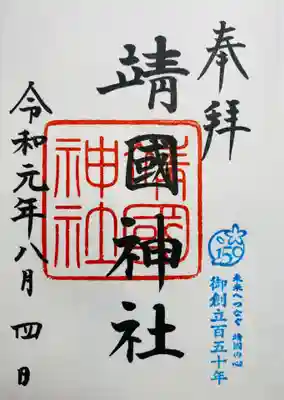 奉拝
150
未来へつなぐ 靖国の心
御創立百五十年
靖國神社
靖國神社
令和元年八月四日